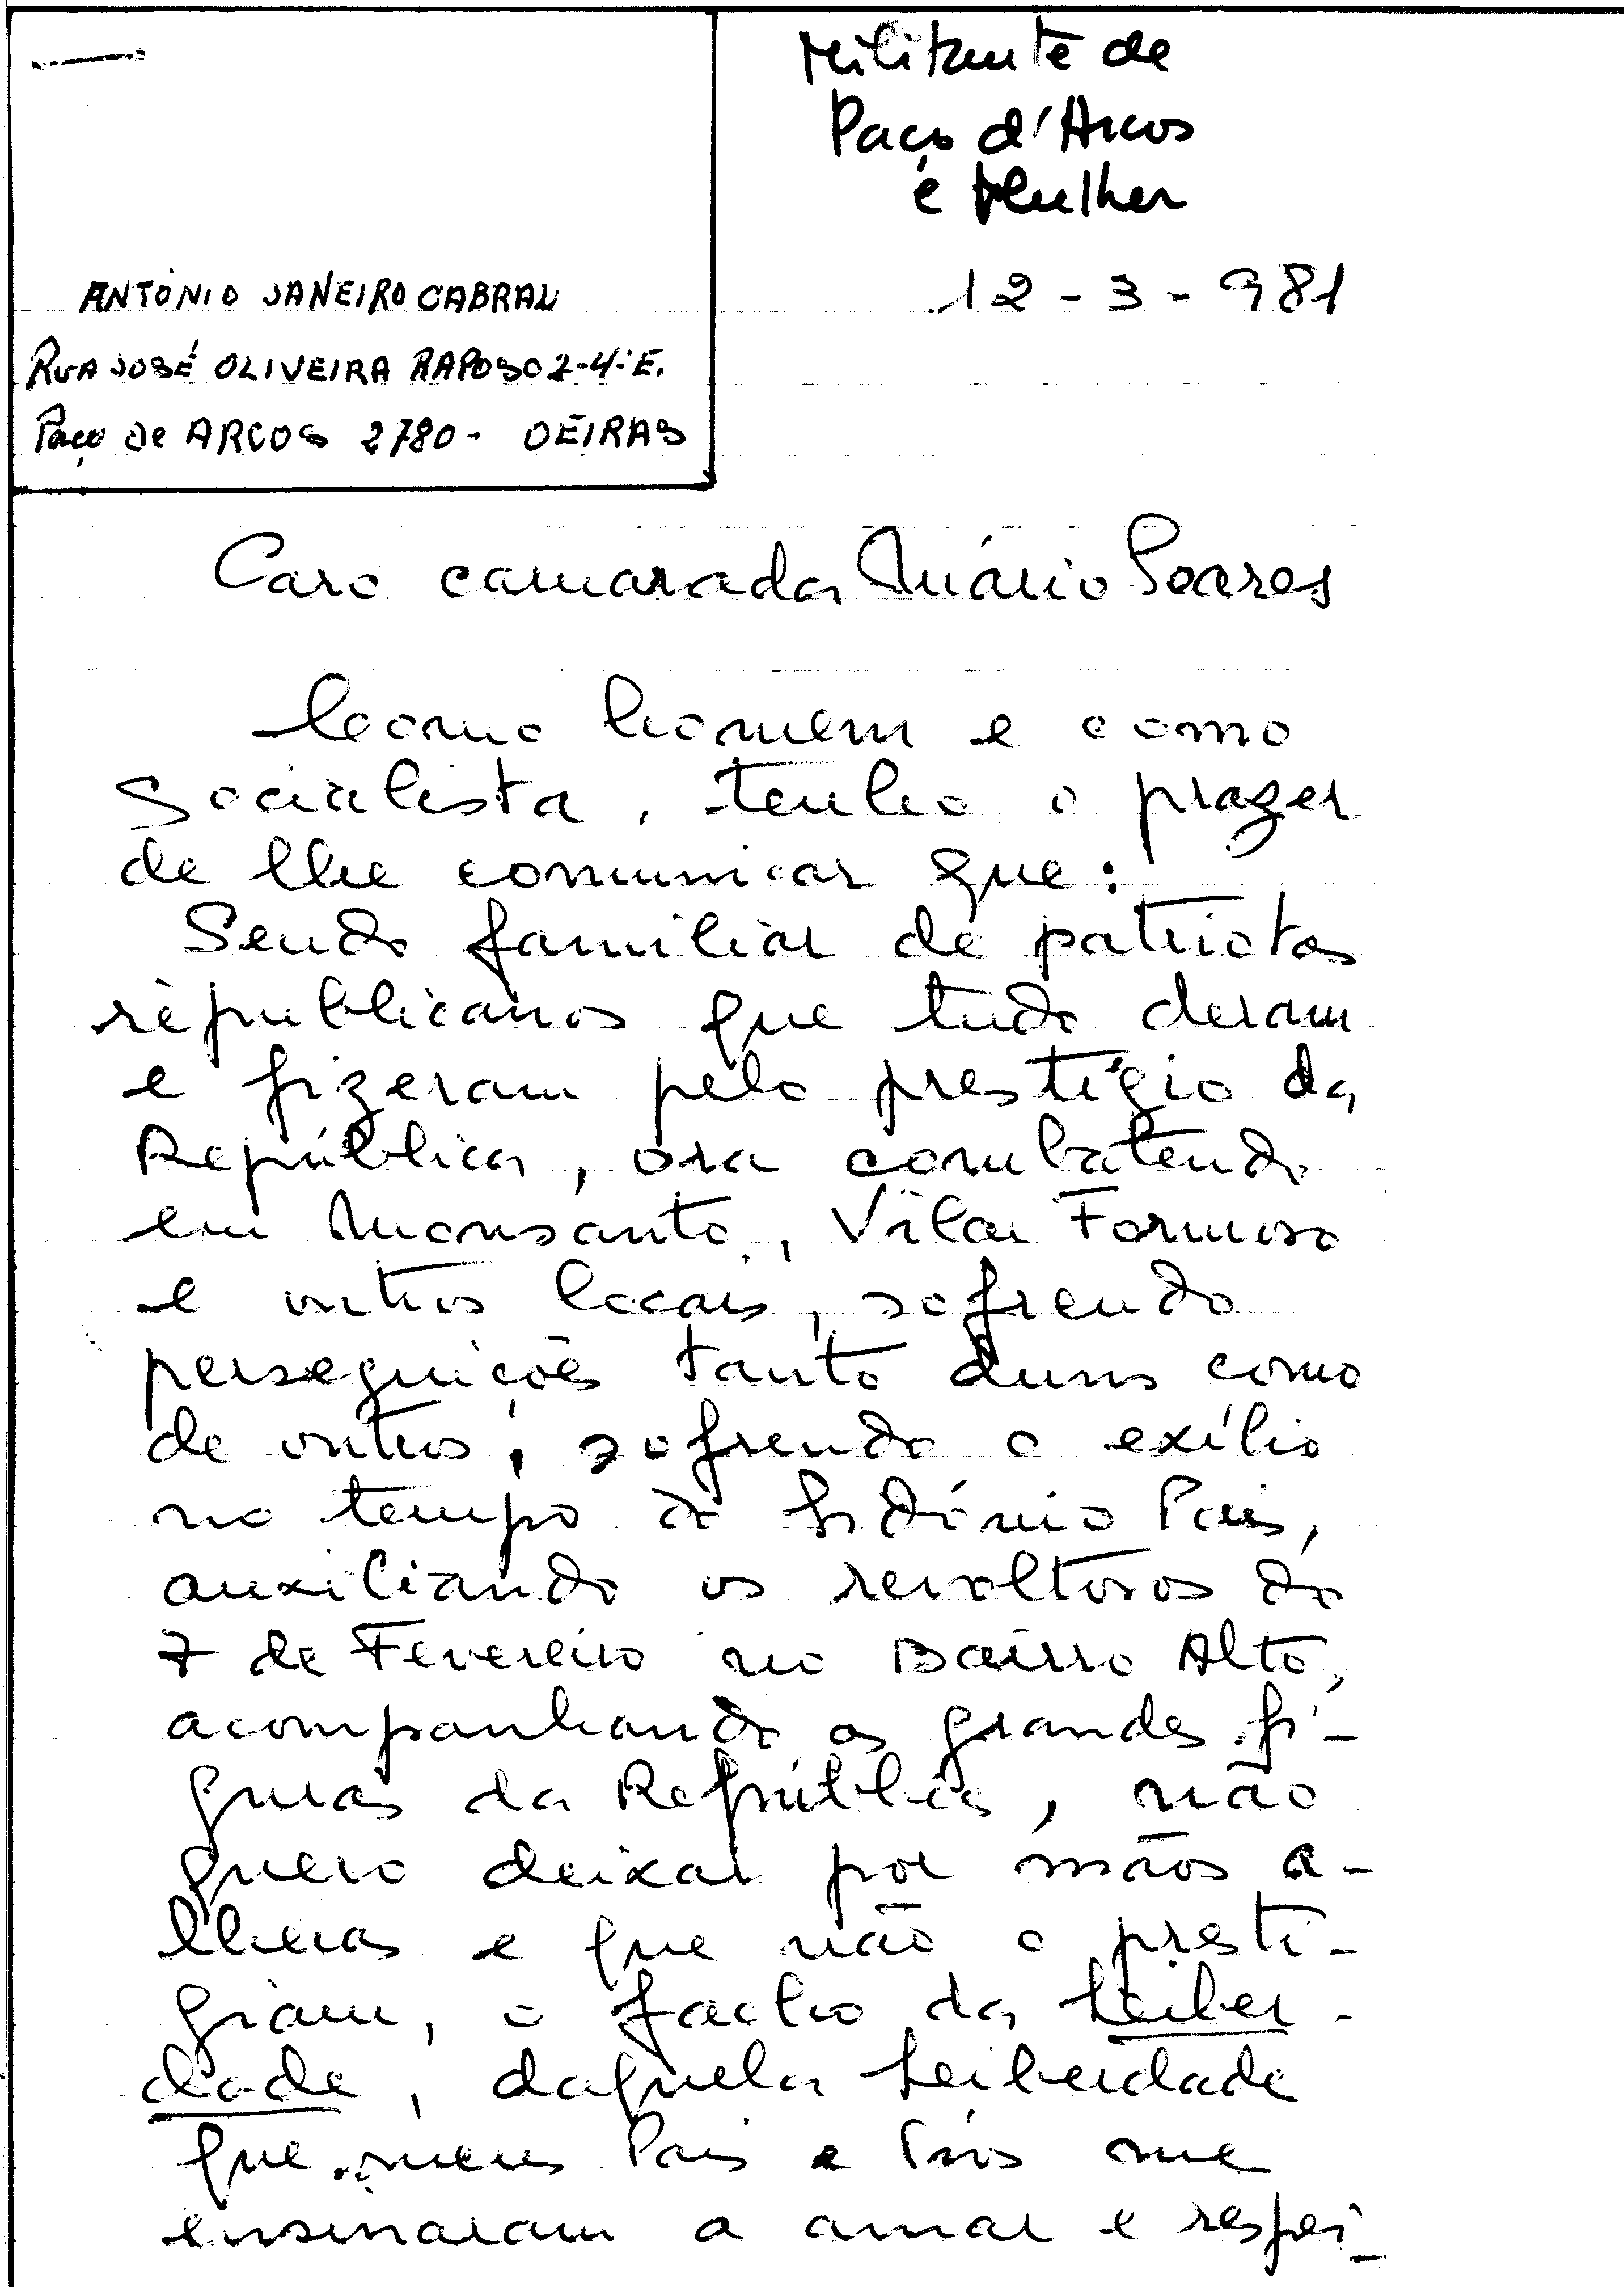 Militante de
Paço d'Arcos
e Mulher
12-3-981
ANTÓNIO JANEIRO CABRAL
RUA JOSÉ OLIVEIRA RAPOSO 2-4-E.
Paço de ARCOS 2780 - OEIRAS
Caro camarada Mário Soares
Como homem e como
Socialista, tenho o prazer
de lhe comunicar que:
Sendo familiar de patriotas
républicanos que tudo deram
e fizeram pelo prestígio da
República, ora combatendo
em Monsanto, Vilar Formoso
e outros locais, sofrendo
perseguições tanto duns como
de outros, sofrendo o exílio
no tempo do Sidónio Pais,
auxiliando os revoltosos do
7 de Fevereiro no Bairro Alto,
acompanhando as grandes fi-
guras da República, não
quero deixar por mãos a-
lheias e que não o presti-
giam, o facho da Liber-
dade, daquela Liberdade
que meus Pais e Tios me
ensinaram a amar e respei-